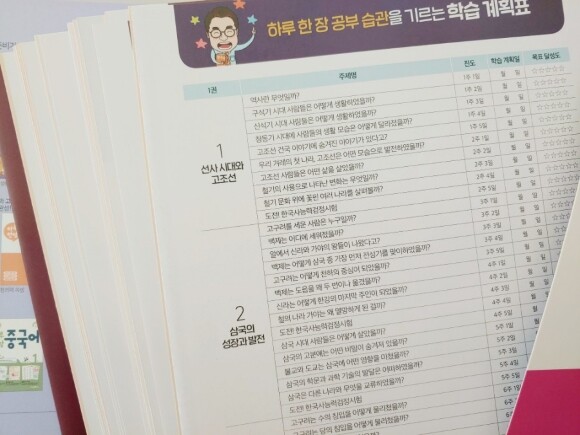 하루 한 장 공부 습관을 기르는 학습 계획표
1권 주제명 진도 학습 계획일 목표 달성도
1
선사 시대와
고조선
역사란 무엇일까? 1주 1일 월 일 ☆☆☆☆☆
구석기 시대 사람들은 어떻게 생활하였을까? 1주 2일 월 일 ☆☆☆☆☆
신석기 시대 사람들은 어떻게 생활하였을까? 1주 3일 월 일 ☆☆☆☆☆
청동기 시대에 사람들의 생활 모습은 어떻게 달라졌을까? 1주 4일 월 일 ☆☆☆☆☆
고조선 건국 이야기에 숨겨진 이야기가 있다고? 1주 5일 월 일 ☆☆☆☆☆
우리 겨레의 첫 나라, 고조선은 어떤 모습으로 발전하였을까? 2주 1일 월 일 ☆☆☆☆☆
고조선 사람들은 어떤 삶을 살았을까? 2주 2일 월 일 ☆☆☆☆☆
철기의 사용으로 나타난 변화는 무엇일까? 2주 3일 월 일 ☆☆☆☆☆
철기 문화 위에 꽃핀 여러 나라를 살펴볼까? 2주 4일 월 일 ☆☆☆☆☆
도전! 한국사능력검정시험 2주 5일 월 일 ☆☆☆☆☆
2
삼국의
성장과 발전
고구려를 세운 사람은 누구일까? 3주 1일 월 일
백제는 어디에 세워졌을까? 3주 2일 월 일
알에서 신라와 가야의 왕들이 나왔다고? 3주 3일 월 일
백제는 어떻게 삼국 중 가장 먼저 전성기를 맞이하였을까? 3주 4일 월 일
고구려는 어떻게 천하의 중심이 되었을까? 3주 5일 월 일
백제는 도읍을 왜 두 번이나 옮겼을까? 4주 1일 월 일
신라는 어떻게 한강의 마지막 주인이 되었을까? 4주 2일 월 일
철의 나라 가야는 왜 멸망하게 된 걸까? 4주 3일 월 일
도전! 한국사능력검정시험 4주 4일 월 일
삼국 시대 사람들은 어떻게 살았을까? 4주 5일 월
삼국의 고분에는 어떤 비밀이 숨겨져 있을까? 5주 1일 월
불교와 도교는 삼국에 어떤 영향을 미쳤을까? 5주 2일 월
삼국의 학문과 과학 기술의 발달은 어떠하였을까? 5주 3일
삼국은 다른 나라와 무엇을 교류하였을까? 5주 4일
도전! 한국사능력검정시험 5주 5일
고구려는 수의 침입을 어떻게 물리쳤을까? 6주 1일
고구려는 당의 침입을 어떻게 물리쳤을까? 6주
중국어